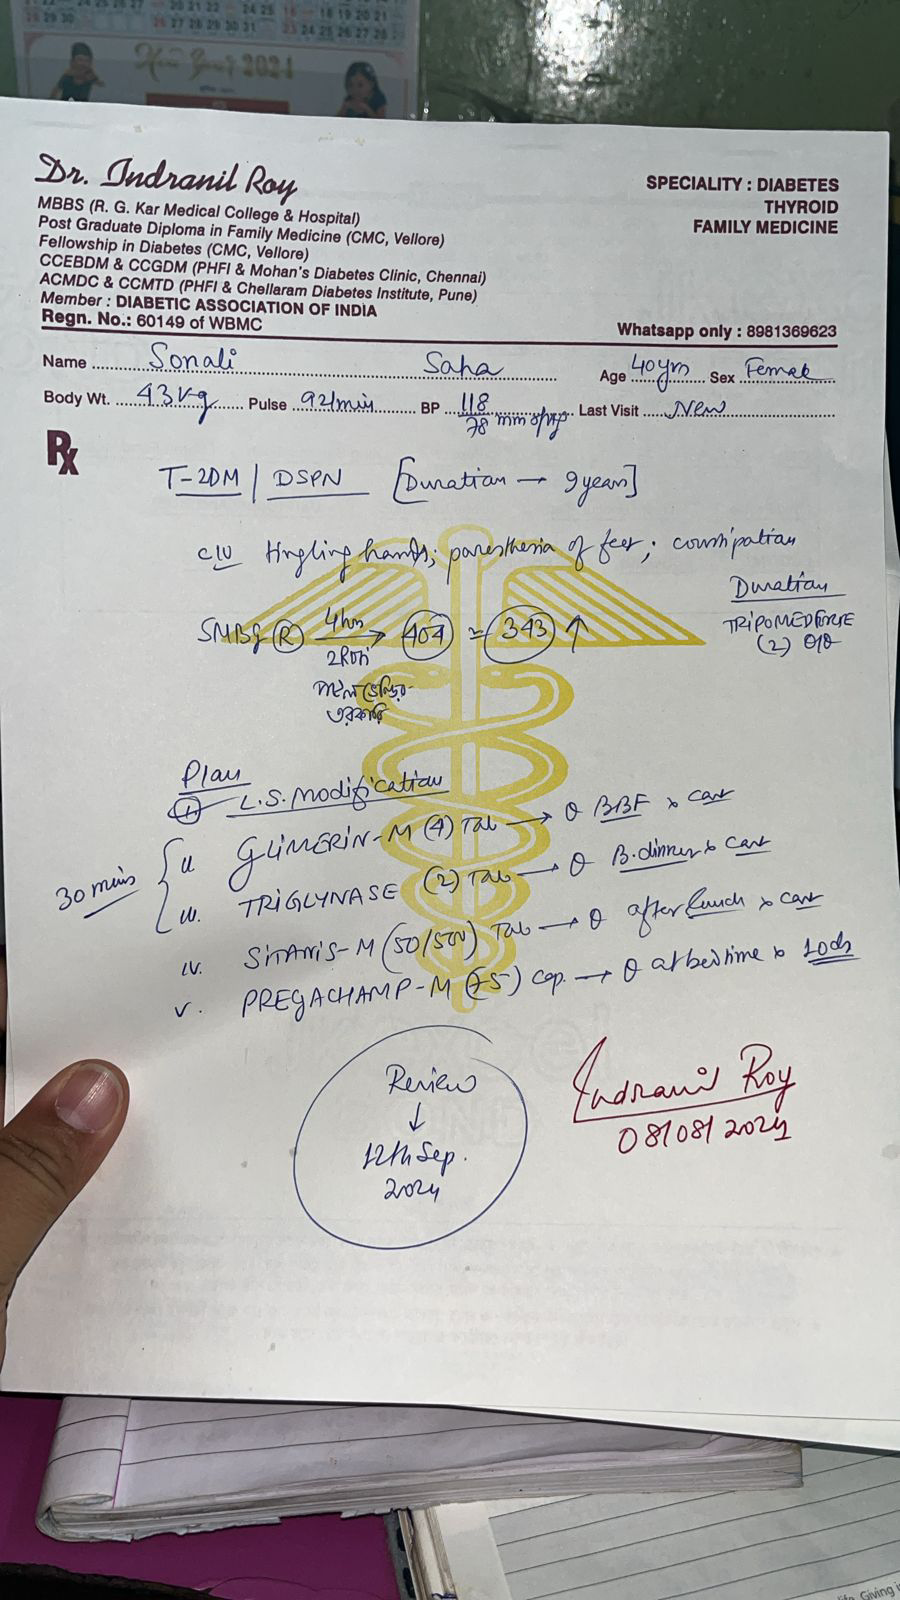 New Year 2024
Dr. Indranil Roy
MBBS (R. G. Kar Medical College & Hospital)
Post Graduate Diploma in Family Medicine (CMC, Vellore)
Fellowship in Diabetes (CMC, Vellore)
CCEBDM & CCGDM (PHFI & Mohan's Diabetes Clinic, Chennai)
ACMDC & CCMTD (PHFI & Chellaram Diabetes Institute, Pune)
Member : DIABETIC ASSOCIATION OF INDIA
Regn. No.: 60149 of WBMC
SPECIALITY : DIABETES
THYROID
FAMILY MEDICINE
Whatsapp only : 8981369623
Name Sonali Saha Age 40yrs Sex Female
Body Wt. 43 kg Pulse 92/min BP 118/78 mm of Hg Last Visit New
Rx
T-2DM / DSPN [Duration → 9 years]
tingling hands; paresthesia of feet; constipation
Duration
TRIPOMEDFORTE
(2)
SMBG (R) 4 hrs → 404 343 ↑
2 Roti
তরকারি
Plan
L.S. Modification
30 mins
ii. GLIMERIN-M (4) Tab → BBF x cont
iii. TRIGLYNASE (2) Tab → B. dinner x cont
iv. SITANIS-M (50/500) Tab → after lunch x cont
v. PREGACHAMP-M (75) Cap. → at bedtime x 10d
Review
↓
12th Sep.
2024
Indranil Roy
08/08/2024